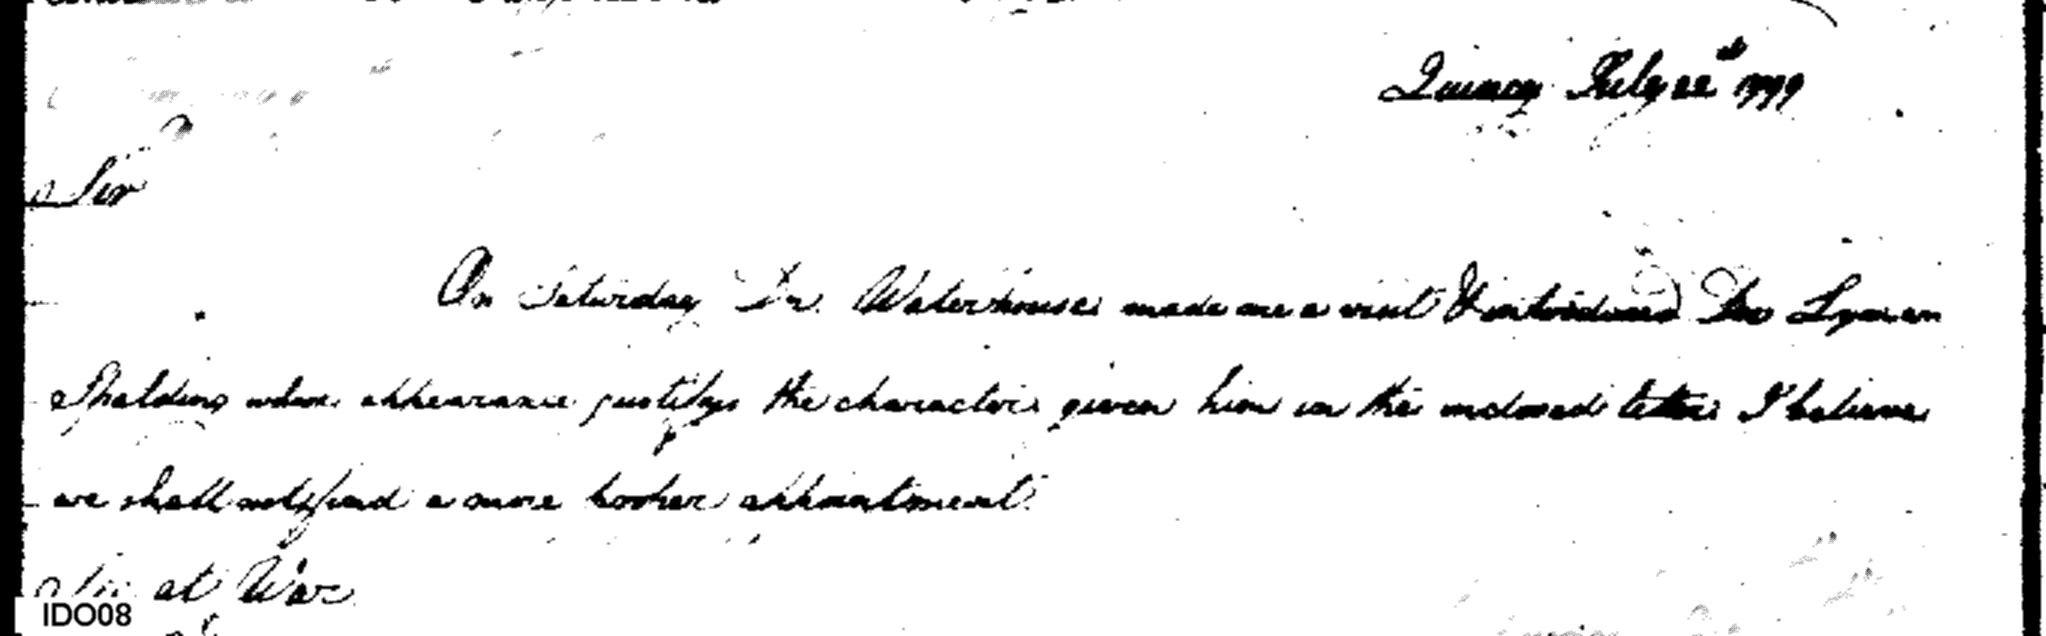 Quincy July 22d 1799
Sir
On Saturday Dr. Waterhouse made me a visit & introduced Dr Lyman
Spalding whose appearance justifys the character given him in the inclosed letter I believe
we shall not find a more proper appointment.
Sec at War
IDO08